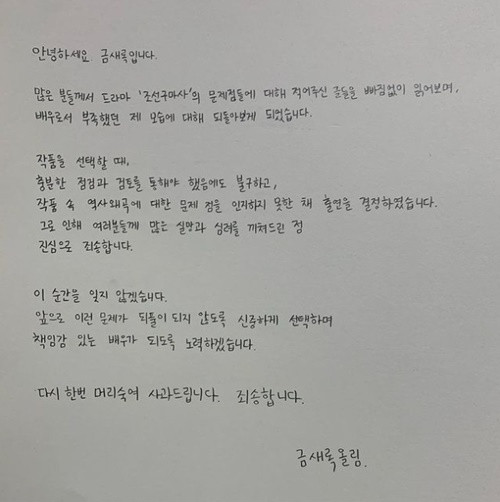 안녕하세요 금새록입니다.
많은 분들께서 드라마 '조선구마사'의 문제점들에 대해 적어주신 글들을 빠짐없이 읽어보며,
배우로서 부족했던 제 모습에 대해 되돌아보게 되었습니다.
작품을 선택할 때,
충분한 점검과 검토를 통해야 했음에도 불구하고,
작품 속 역사왜곡에 대한 문제 점을 인지하지 못한 채 출연을 결정하였습니다.
그로 인해 여러분들께 많은 실망과 심려를 끼쳐드린 점
진심으로 죄송합니다.
이 순간을 잊지 않겠습니다.
앞으로 이런 문제가 되풀이 되지 않도록 신중하게 선택하며
책임감 있는 배우가 되도록 노력하겠습니다.
다시 한번 머리숙여 사과드립니다. 죄송합니다.
금새록올림.